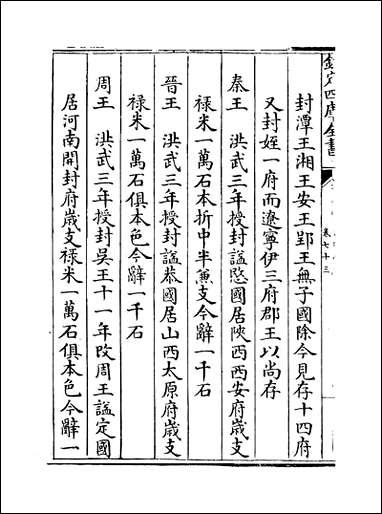 欽定四庫全書
卷七十三
封潭王湘王安王郢王無子國除今見存十四府
又封姪一府而遼寧伊三府郡王以尚存
秦王　洪武三年授封諡愍國居陜西西安府歲支
祿米一萬石本折中半兼支今辭一千石
晉王　洪武三年授封諡恭國居山西太原府歲支
祿米一萬石俱本色今辭一千石
周王　洪武三年授封吳王十一年改周王諡定國
居河南開封府歲支祿米一萬石俱本色今辭一